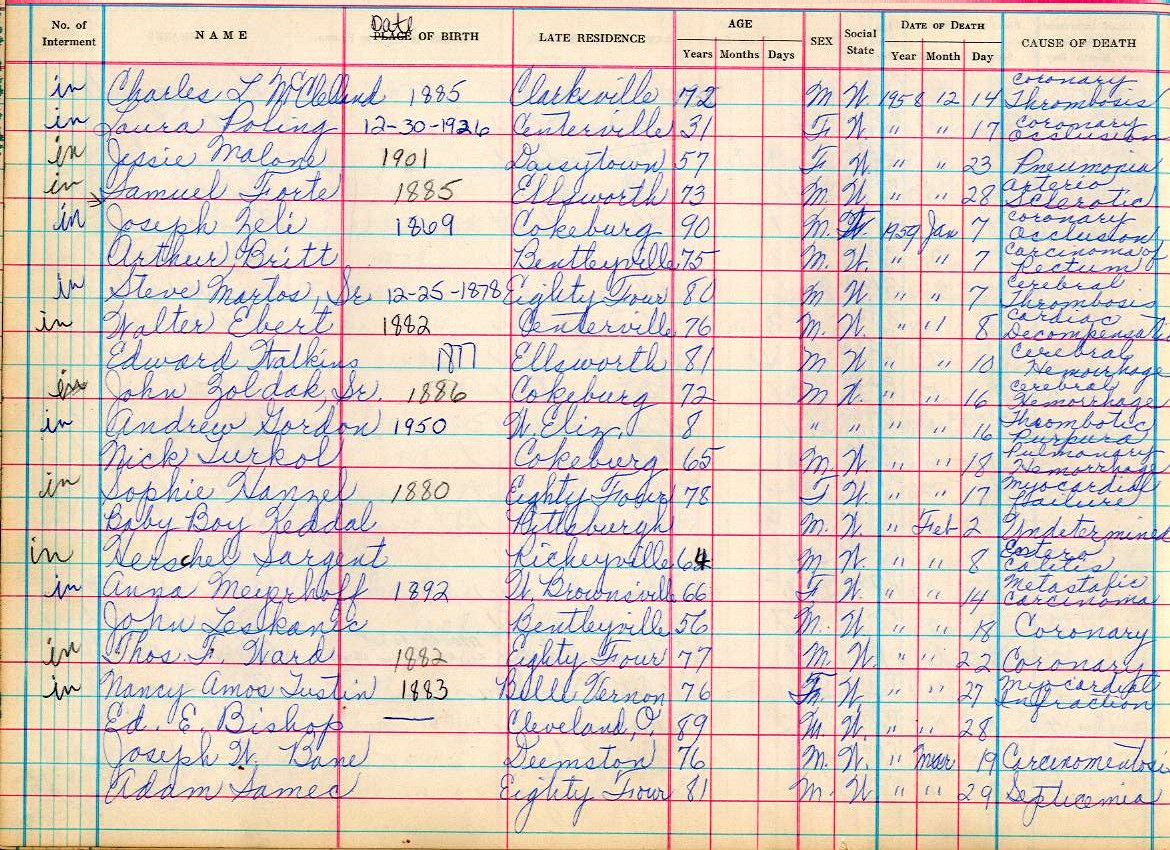 No. of Interment NAME Date PLACE OF BIRTH LATE RESIDENCE AGE Years Months Days SEX Social State DATE OF DEATH Year Month Day CAUSE OF DEATH
in Charles L McClelland 1885 Clarksville 72 M W. 1958 12 14 Coronary Thrombosis
in Laura Poling 12-30-1926 Centerville 31 F W. " " 17 Coronary Occlusion
in Jessie Malone 1901 Daisytown 57 F W. " " 23 Pneumonia
in Samuel Forte 1885 Ellsworth 73 M. W. " " 28 Arterio Sclerotic
in Joseph Zeli 1869 Cokeburg 90 M. W. 1959 Jan 7 Coronary Occlusion
Arthur Britt Bentleyville 75 M. W. " " 7 Carcinoma of Rectum
in Steve Martos, Sr. 12-25-1878 Eighty Four 80 M W. " " 7 Cerebral Thrombosis
in Walter Ebert 1882 Centerville 76 M. W. " " 8 Cardiac Decompensati
Edward Watkins 1877 Ellsworth 81 M W " " 10 Cerebral Hemorrhage
in John Zoldak, Sr. 1886 Cokeburg 72 M W. " " 16 Cerebral Hemorrhage
in Andrew Gordon 1950 W. Eliz. 8 " " " " 16 Thrombotic Purpura
Nick Turkol Cokeburg 65 M. W. " " 18 Pulmonary Hemorrhage
in Sophie Hanzel 1880 Eighty Four 78 F W. " " 17 Myocardial Failure
Baby Boy Keddal Pittsburgh M. W. " Feb 2 Undetermined
in Herschel Sargent Rickeyville 64 M W. " " 8 Entero Colitis
in Anna Meyerhoff 1892 W. Brownsville 66 F W. " " 14 Metastatic Carcinoma
John Leskanic Bentleyville 56 M. W. " " 18 Coronary
in Thos. F. Ward 1882 Eighty Four 77 M. W. " " 22 Coronary
in Nancy Amos Tustin 1883 Belle Vernon 76 F W. " " 27 Myocardial Infraction
Ed. E. Bishop Cleveland, O. 89 M. W. " " 28
Joseph W. Bane Deemston 76 M. W. " Mar 19 Carcinomentosi
Adam Samec Eighty Four 81 M. W. " " 29 Septicemia